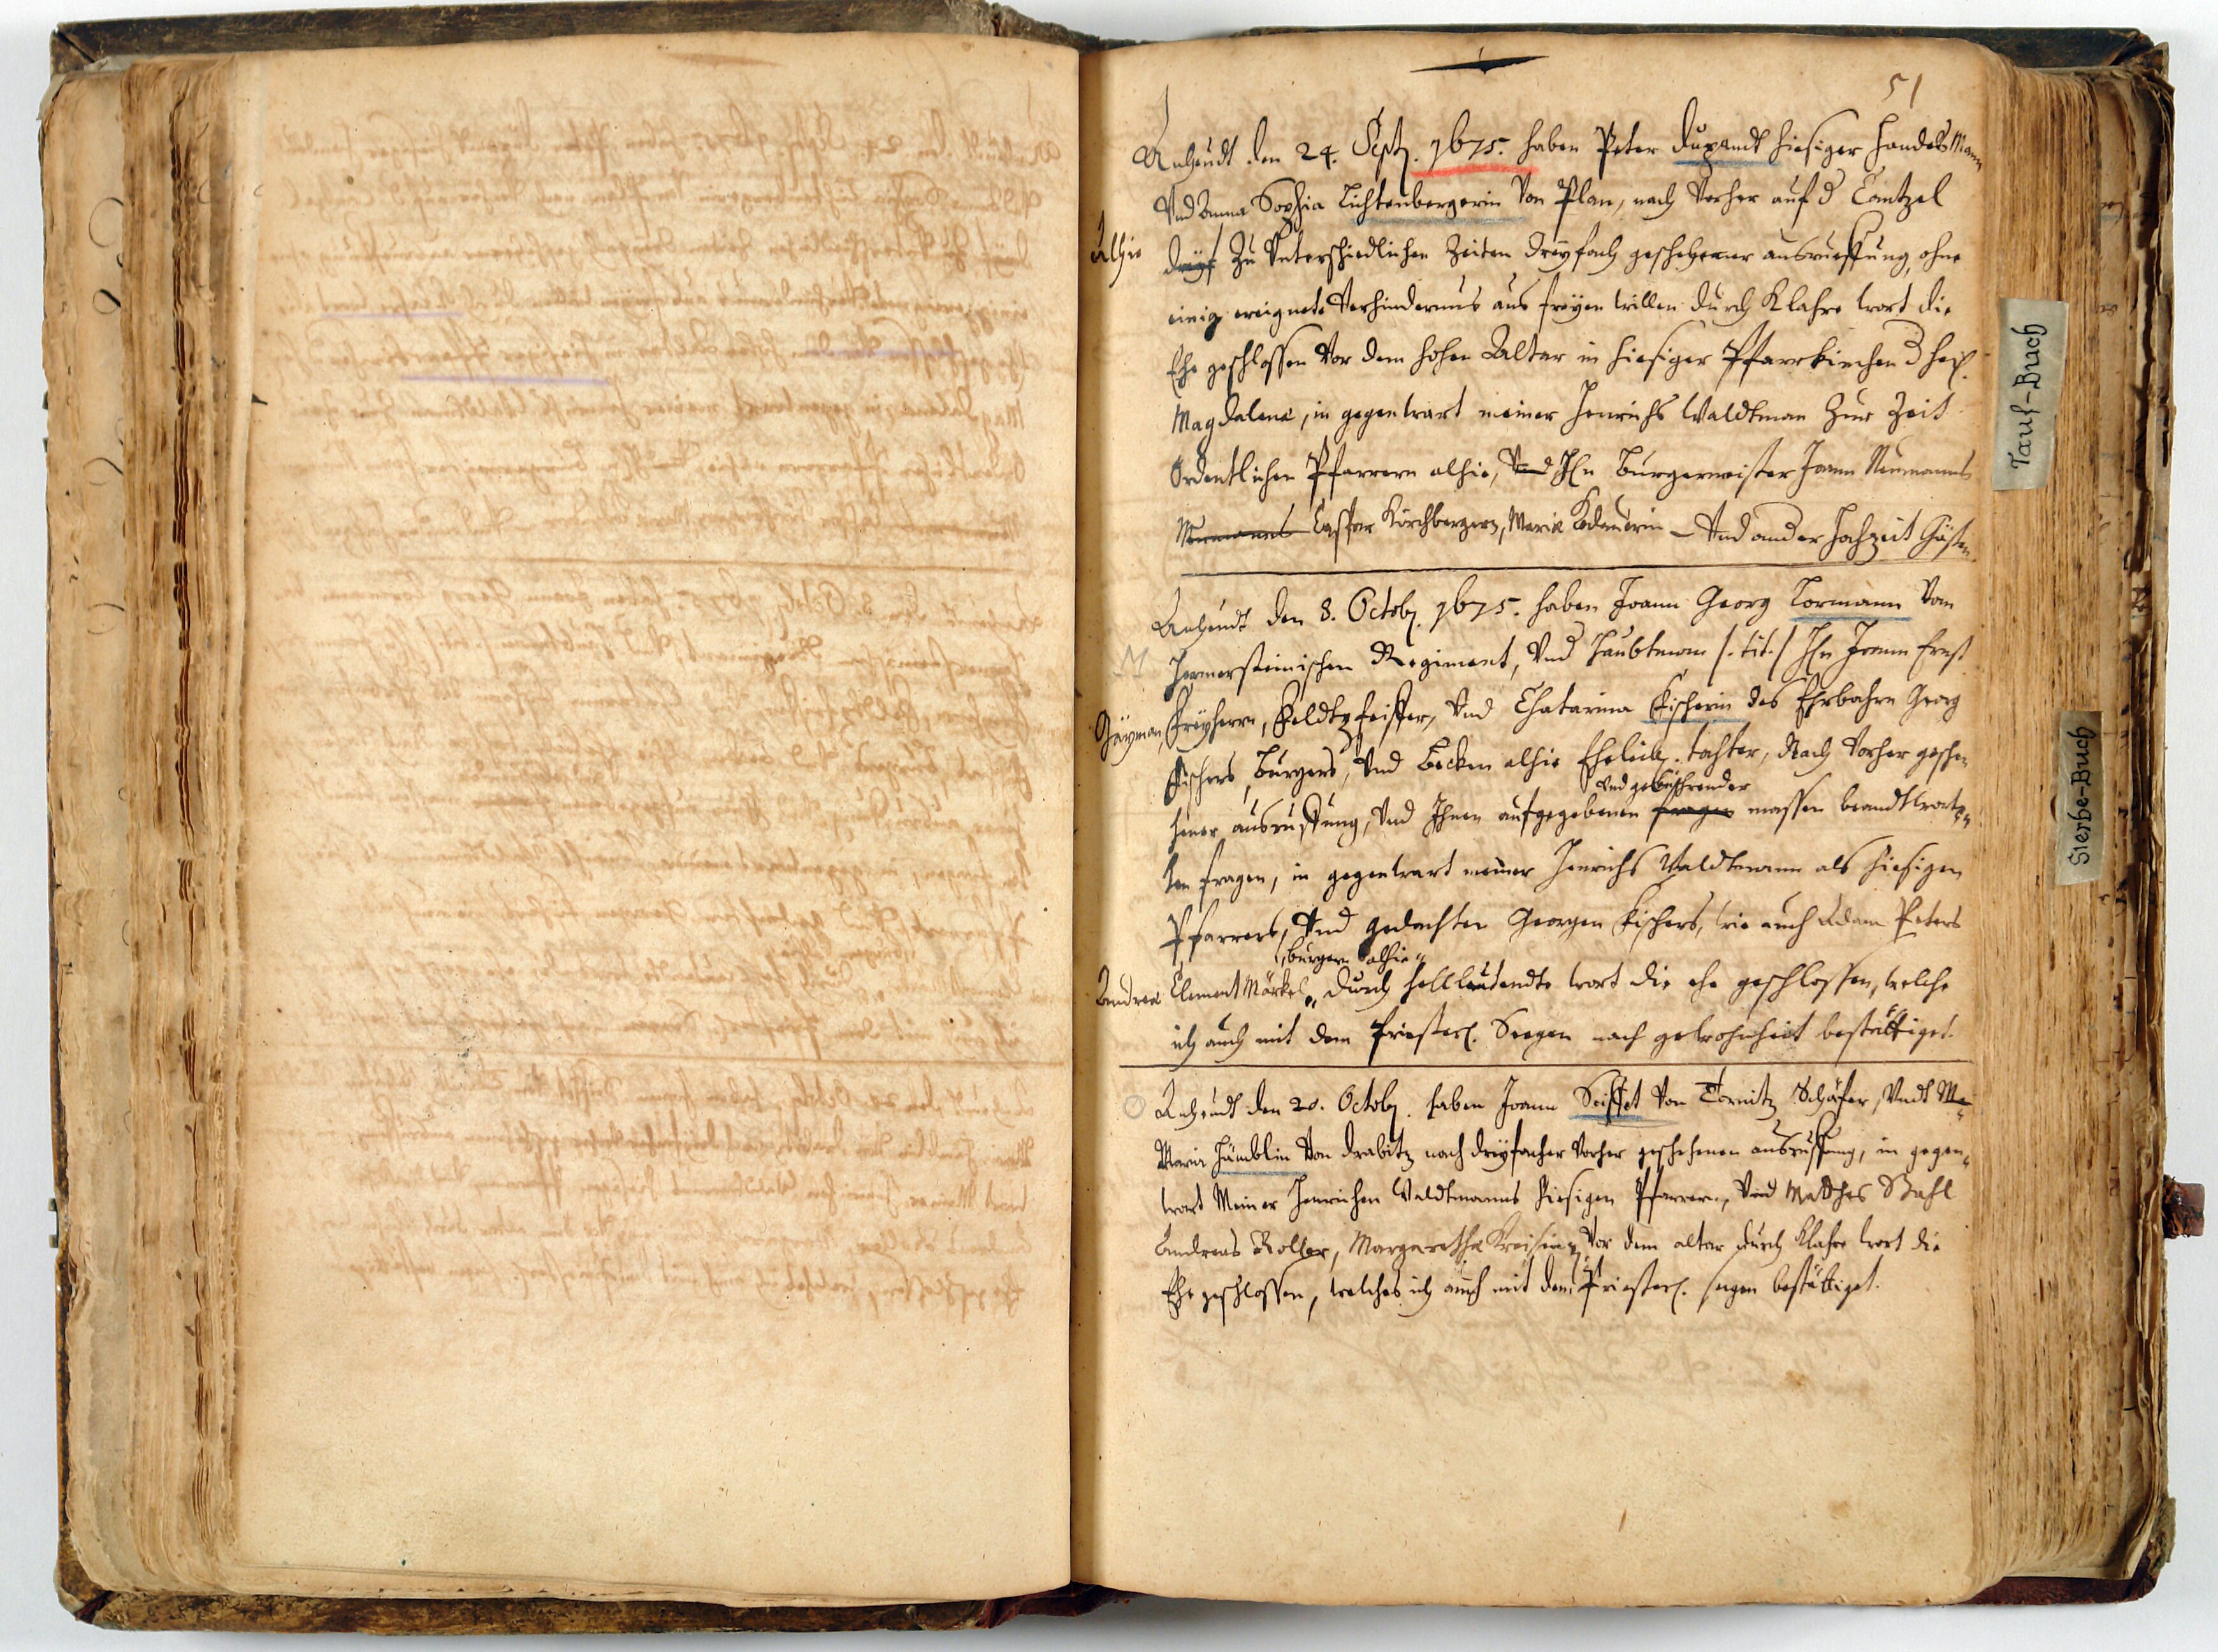 51
Anheudt den 24. Sept. 1675. haben Peter Dupandt hiesiger Handels Mann
Vnd Anna Sophia Lichtenbergerin Von Plan, nach Vorher auf d Cantzel
Alhie dreÿf Zu Vnterschiedlichen Zeiten dreÿfach geschehener ausrueffung, ohne
einig ereignete Verhindernus aus freÿen willen durch Klahre wort die
Ehe geschlossen Vor dem hohen Altar in hiesiger Pfarrkirchen d heil.
Magdalenæ, in gegenwart meiner Henrichs Waldtman Zur Zeit
Ordentlichen Pfarrern alhie, Vnd Hn Burgermeister Joann Neumanns
Neumanns Caspar Kirchbergern, Maria Vnd ander Hochzeit Gästen
Anheudt den 8. Octob. 1675. haben Joann Georg Lormann Vom
M
Regiment, Vnd Haubtman /: tit: / Hn Joann Ernst
Freÿherrn, Feldtpfeiffer, Vnd Chatarina Fischerin des Ehrbahrn Georg
Fischers Burgers, Vnd Becken alhie Ehelich. tochter, Nach Vorher gesche-
Vnd gebührender
hener ausruffung, Vnd Ihnen aufgegebenen fragen massen beandtworte-
ten fragen, in gegenwart meiner Henrichs Waldtmann als hiesigen
Pfarrers, Vnd gedachten Georgen Fischers, wie auch Adam Peters
burgern alhie
Andreæ Clement Märkel durch helllautendte wort die ehe geschlossen, welche
ich auch mit dem Priesterl. Seegen nach gewohnheit bestättiget.
Anheudt den 20. Octob. haben Joann Seiffet Von Tornitz Schäfer, Vndt Ma-
Maria Hämblin Von drabitz nach dreÿfacher Vorher geschehenen ausruffung, in gegen-
wart Meiner Henrichen Waldtmanns hiesigen Pfarrern, Vnd Matthes Stahl
Andreas Roller, Margaretha Vor dem altar durch Klahre wort die
Ehe geschlossen, welches ich auch mit dem Priesterl. segen bestättiget.
Tauf-Buch
Sterbe-Buch